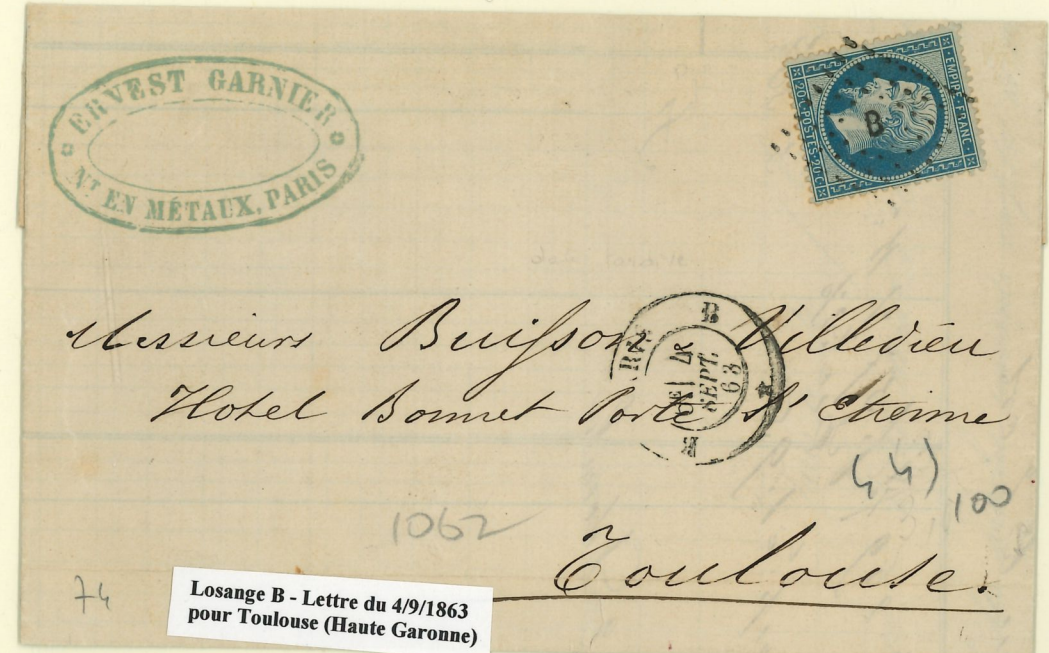 ERNEST GARNIER
NT EN MÉTAUX, PARIS
EMPIRE FRANC
20 C POSTES 20 C
B
Messieurs Buisson Villedieu
Hotel Bonnet Porte St Etienne
Toulouse.
B
4
SEPT.
63
E
44)
100
1062
74
Losange B - Lettre du 4/9/1863
pour Toulouse (Haute Garonne)